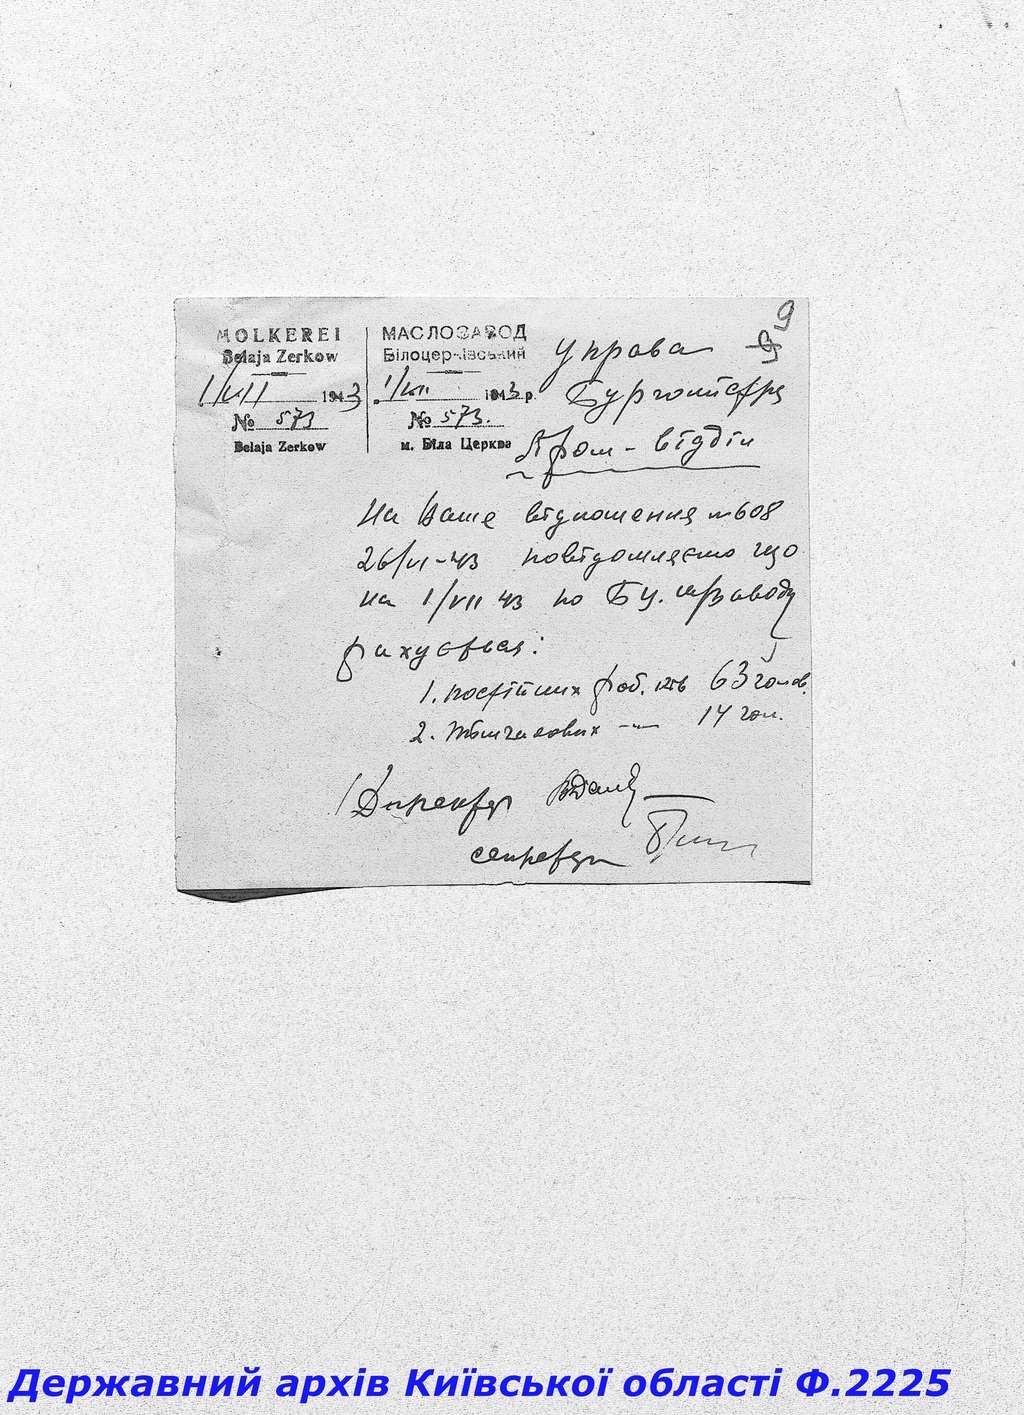 9
MOLKEREI
Belaja Zerkow
1/VII 1943
№ 573
Belaja Zerkow
МАСЛОЗАВОД
Білоцерківський
1/VII 1943 р.
№ 573.
м. Біла Церква
Управа
Бургомістра
Пром-відділ
На Ваше відношення № 608
26/VI-43 повідомляємо що
на 1/VII 43 по Бц. м/заводу
рахується:
1. постійних роб. 63 голов.
2. тимчасових —„— 14 гол.
Директор
секретар
Державний архів Київської області Ф.2225